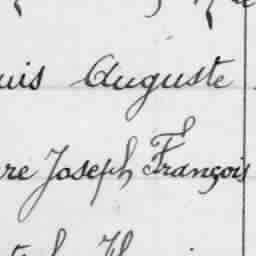 uis Auguste
re Joseph François